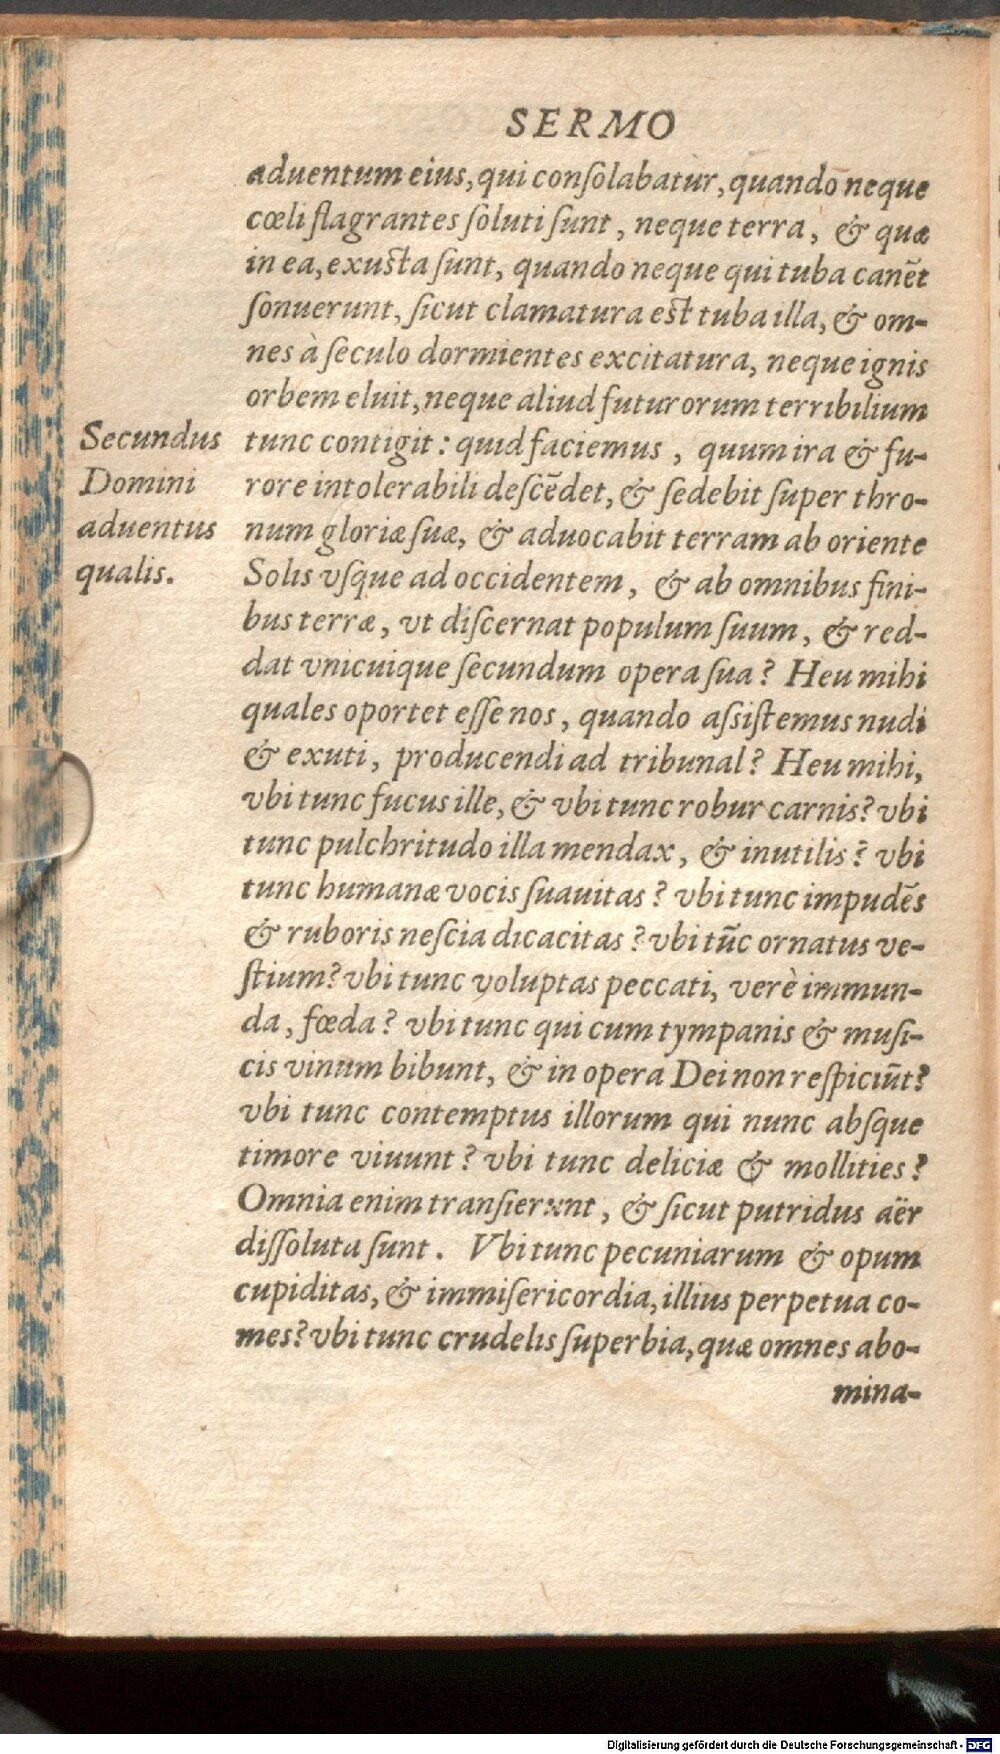 SERMO
aduentum eius, qui conſolabatur, quando neque
cœli flagrantes ſoluti ſunt, neque terra, & quæ
in ea, exusta ſunt, quando neque qui tuba canēt
ſonuerunt, ſicut clamatura est tuba illa, & om-
nes à ſeculo dormientes excitatura, neque ignis
orbem eluit, neque aliud futurorum terribilium
Secundus
Domini
aduentus
qualis.
tunc contigit: quid faciemus, quum ira & fu-
rore intolerabili deſcēdet, & ſedebit ſuper thro-
num gloriæ ſuæ, & aduocabit terram ab oriente
Solis vſque ad occidentem, & ab omnibus fini-
bus terræ, vt diſcernat populum ſuum, & red-
dat vnicuique ſecundum opera ſua? Heu mihi
quales oportet eſſe nos, quando aſsiſtemus nudi
& exuti, producendi ad tribunal? Heu mihi,
vbi tunc fucus ille, & vbi tunc robur carnis? vbi
tunc pulchritudo illa mendax, & inutilis? vbi
tunc humanæ vocis ſuauitas? vbi tunc impudēs
& ruboris neſcia dicacitas? vbi tūc ornatus ve-
ſtium? vbi tunc voluptas peccati, verè immun-
da, fœda? vbi tunc qui cum tympanis & muſi-
cis vinum bibunt, & in opera Dei non reſpiciūt?
vbi tunc contemptus illorum qui nunc abſque
timore viuunt? vbi tunc deliciæ & mollities?
Omnia enim tranſierunt, & ſicut putridus aër
diſſoluta ſunt. Vbi tunc pecuniarum & opum
cupiditas, & immiſericordia, illius perpetua co-
mes? vbi tunc crudelis ſuperbia, quæ omnes abo-
mina-
Digitalisierung gefördert durch die Deutsche Forschungsgemeinschaft - DFG